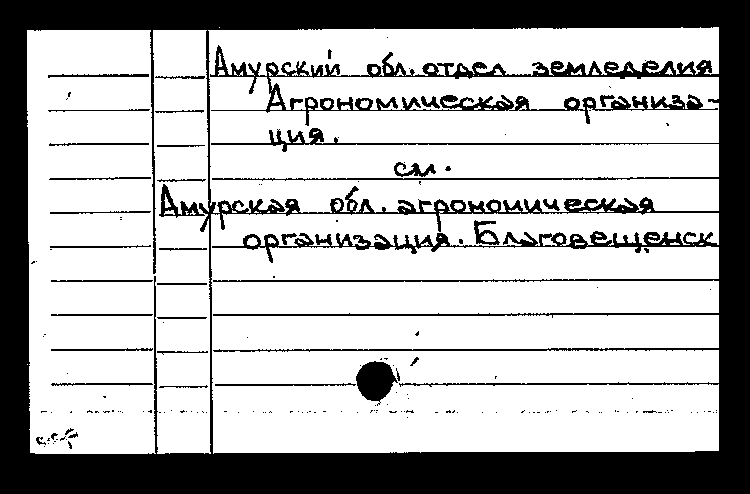 Амурский обл. отдел земледелия
Агрономическая организа-
ция.
см.
Амурская обл. агрономическая
организация. Благовещенск